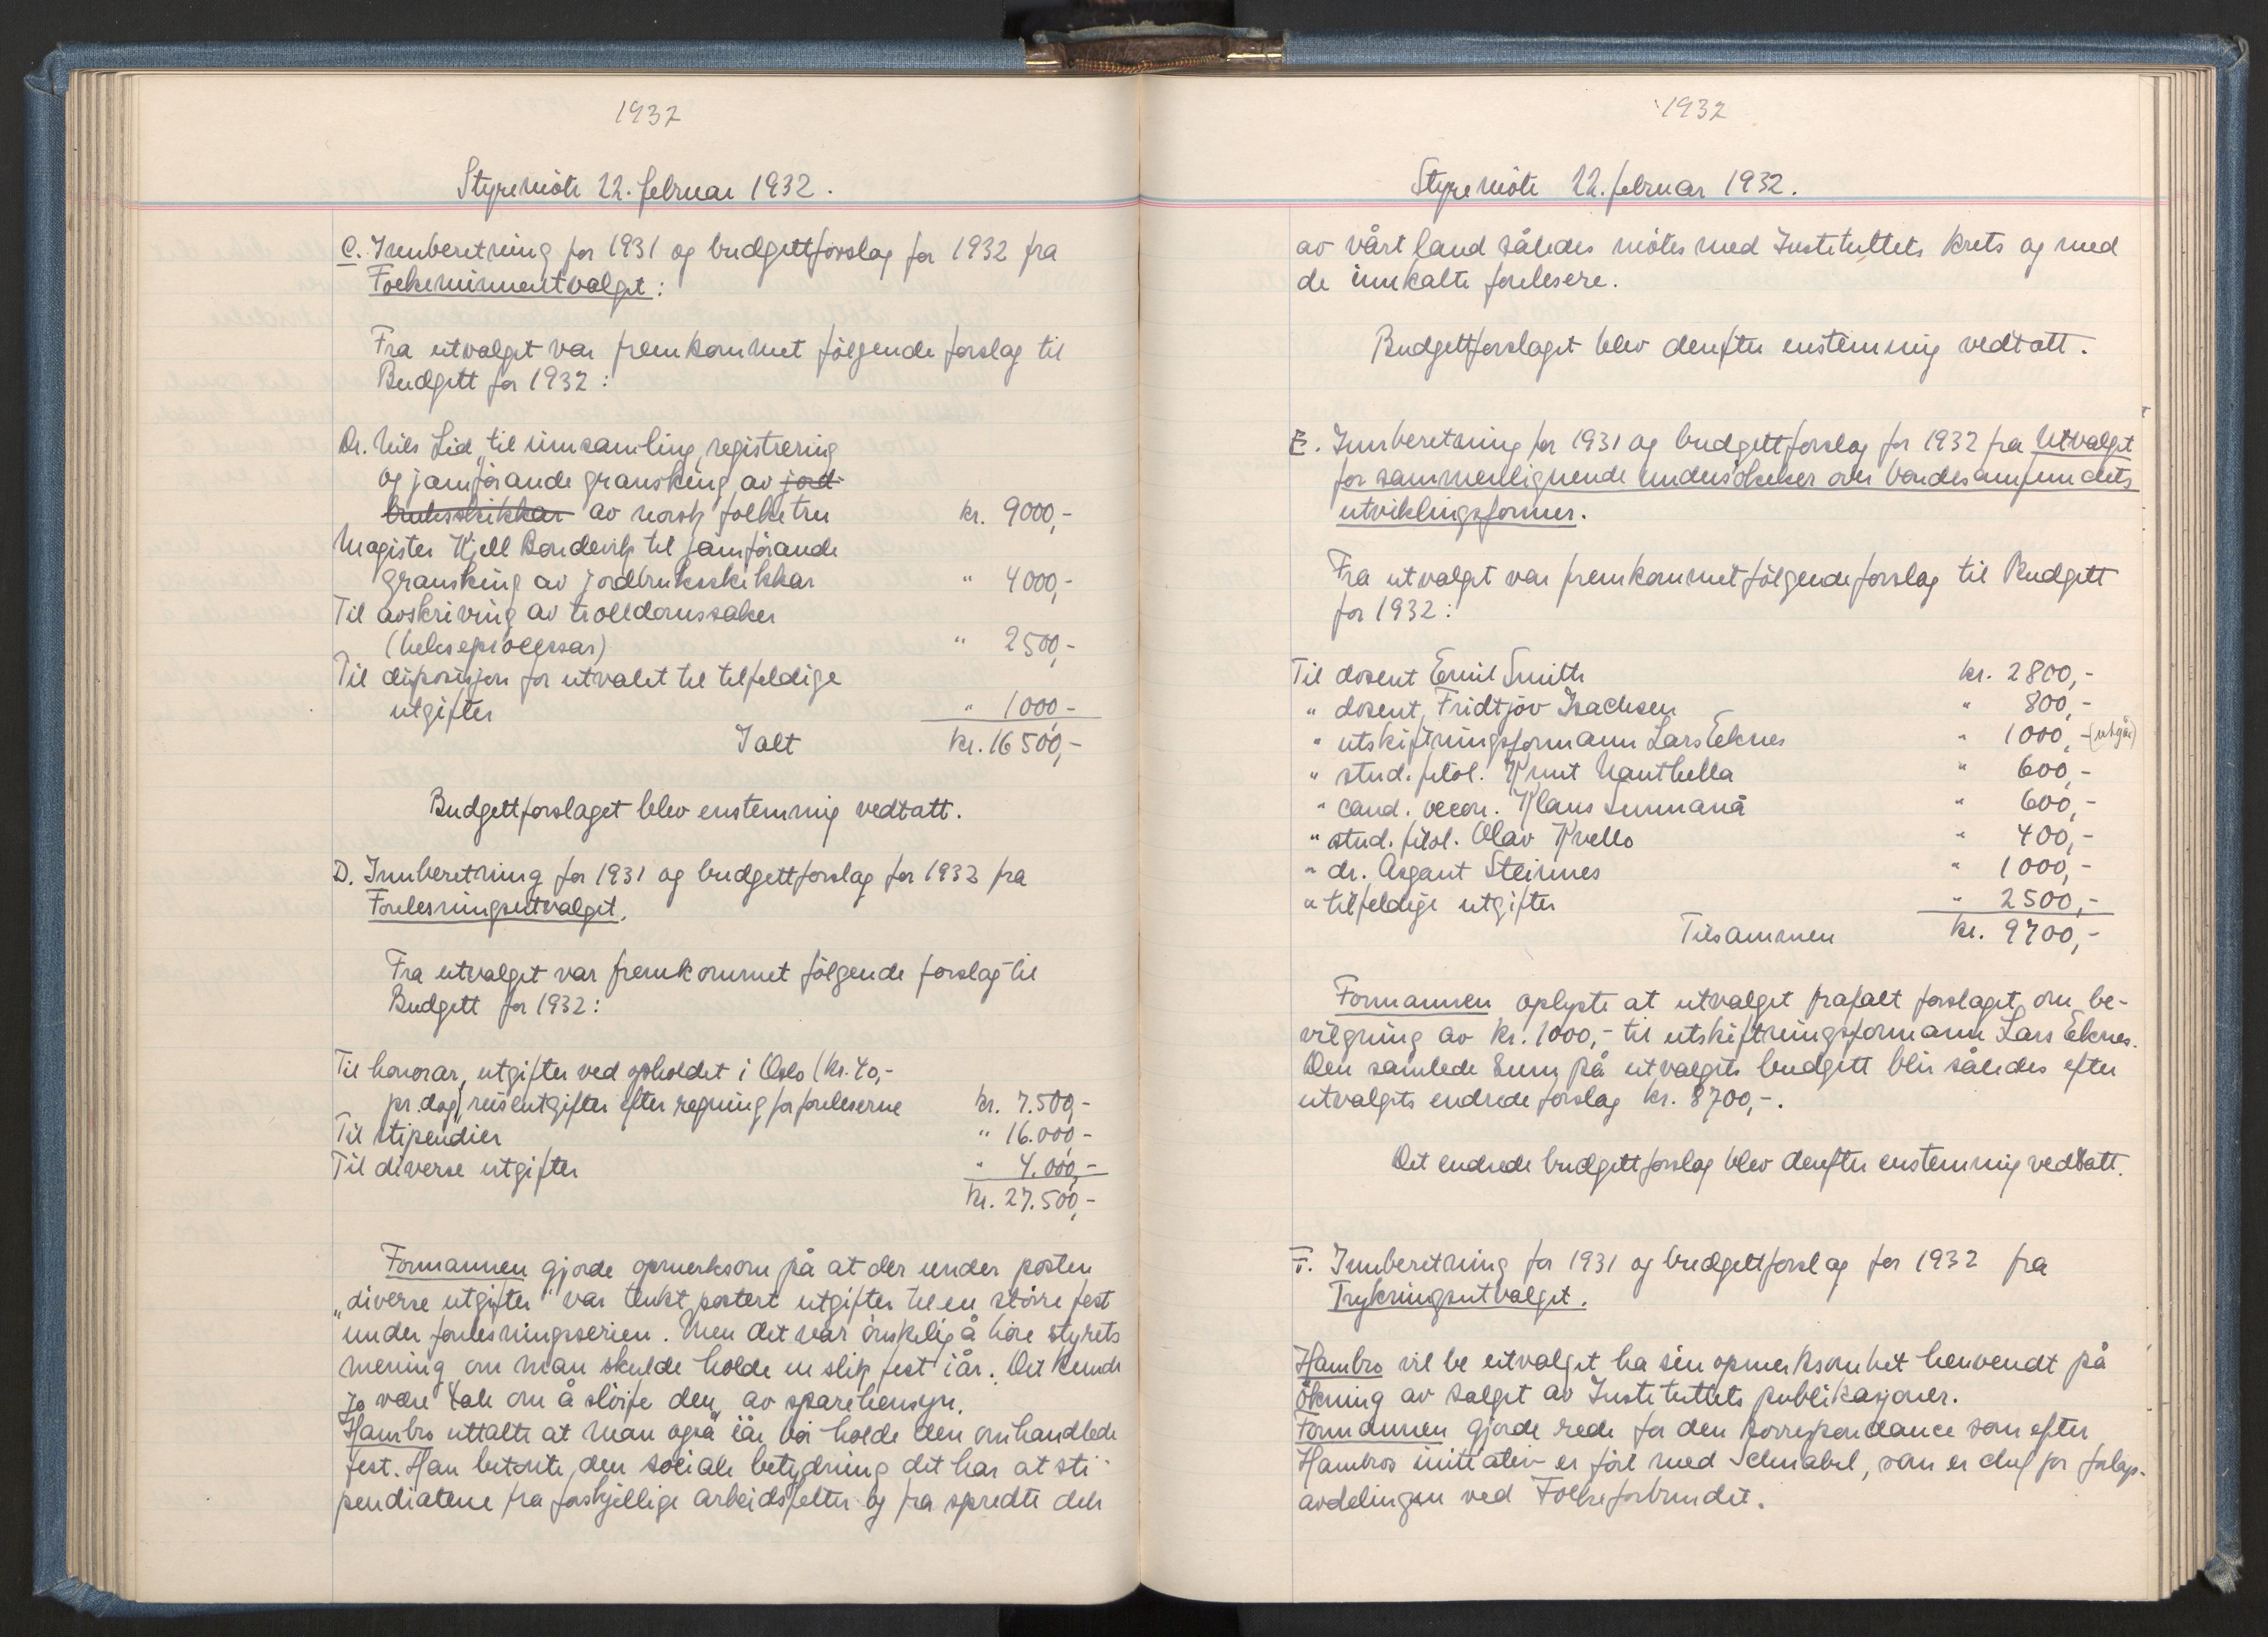 1932
Styremöte 22. februar 1932.
C. Innberetning for 1931 og budgettforslag for 1932 fra
Folkeminneutvalget:
Fra utvalget var fremkommet fölgende forslag til
Budgett for 1932:
Dr. Nils Lid, til innsamling, registrering
og jamförande gransking av jord-
bruksskikkar av norsk folketru kr. 9000,-
Magister Kjell Bondevik til jamförande
gransking av jordbruksskikkar " 4000,-
Til avskriving av trolldomssaker
(hekseprocessar) " 2500,-
Til disposisjon for utvalet til tilfeldige
utgifter " 1000-
Ialt kr. 16500,-
Budgettforslaget blev enstemmig vedtatt.
D. Innberetning for 1931 og budgettforslag for 1932 fra
Forelesningsutvalget.
Fra utvalget var fremkommet fölgende forslag til
Budgett for 1932:
Til honorar, utgifter ved opholdet i Oslo (kr. 40,-
pr. dag), reiseutgifter efter regning for foreleserne kr. 7.500,-
Til stipendier " 16.000,-
Til diverse utgifter " 4.000,-
kr. 27.500,-
Formannen gjorde opmerksom på at der under posten
"diverse utgifter" var tenkt postert utgifter til en större fest
under forelesningsserien. Men det var önskelig å höre styrets
mening om man skulde holde en slik fest iår. Det kunde
jo være tale om å slöife den av sparehensyn.
Hambro uttalte at man også iår bör holde den omhandlede
fest. Han betonte den sociale betydning det har at sti-
pendiatene fra forskjellige arbeidsfelter og fra spredte deler
1932
Styremöte 22. februar 1932.
av vårt land således mötes med Instituttets krets og med
de innkalte forelesere.
Budgettforslaget blev derefter enstemmig vedtatt.
E. Innberetning for 1931 og budgettforslag for 1932 fra Utvalget
for sammenlignende undersökelser over bondesamfundets
utviklingsformer.
Fra utvalget var fremkommet fölgende forslag til Budgett
for 1932:
Til dosent Emil Smith kr. 2800,-
" dosent Fridtjov Isachsen " 800,-
" utskiftningsformann Lars Eknes " 1000,- (utgår)
" stud. filol. Knut " 600,-
" cand. oecon. Klaus Sunnanå " 600,-
" stud. filol. Olav Kvello " 400,-
" dr. Asgaut Steinnes " 1000,-
" tilfeldige utgifter " 2500,-
Tilsammen kr. 9700,-
Formannen oplyste at utvalget frafalt forslaget om be-
vilgning av kr. 1000,- til utskiftningsformann Lars Eknes.
Den samlede sum på utvalgets budgett blir således efter
utvalgets endrede forslag kr. 8700,-.
Det endrede budgettforslag blev derefter enstemmig vedtatt.
F. Innberetning for 1931 og budgettforslag for 1932 fra
Trykningsutvalget.
Hambro vil be utvalget ha sin opmerksomhet henvendt på
ökning av salget av Instituttets publikasjoner.
Formannen gjorde rede for den korrespondance som efter
Hambros initiativ er fört med Schnabel, som er chef for forlags-
avdelingen ved Folkeforbundet.